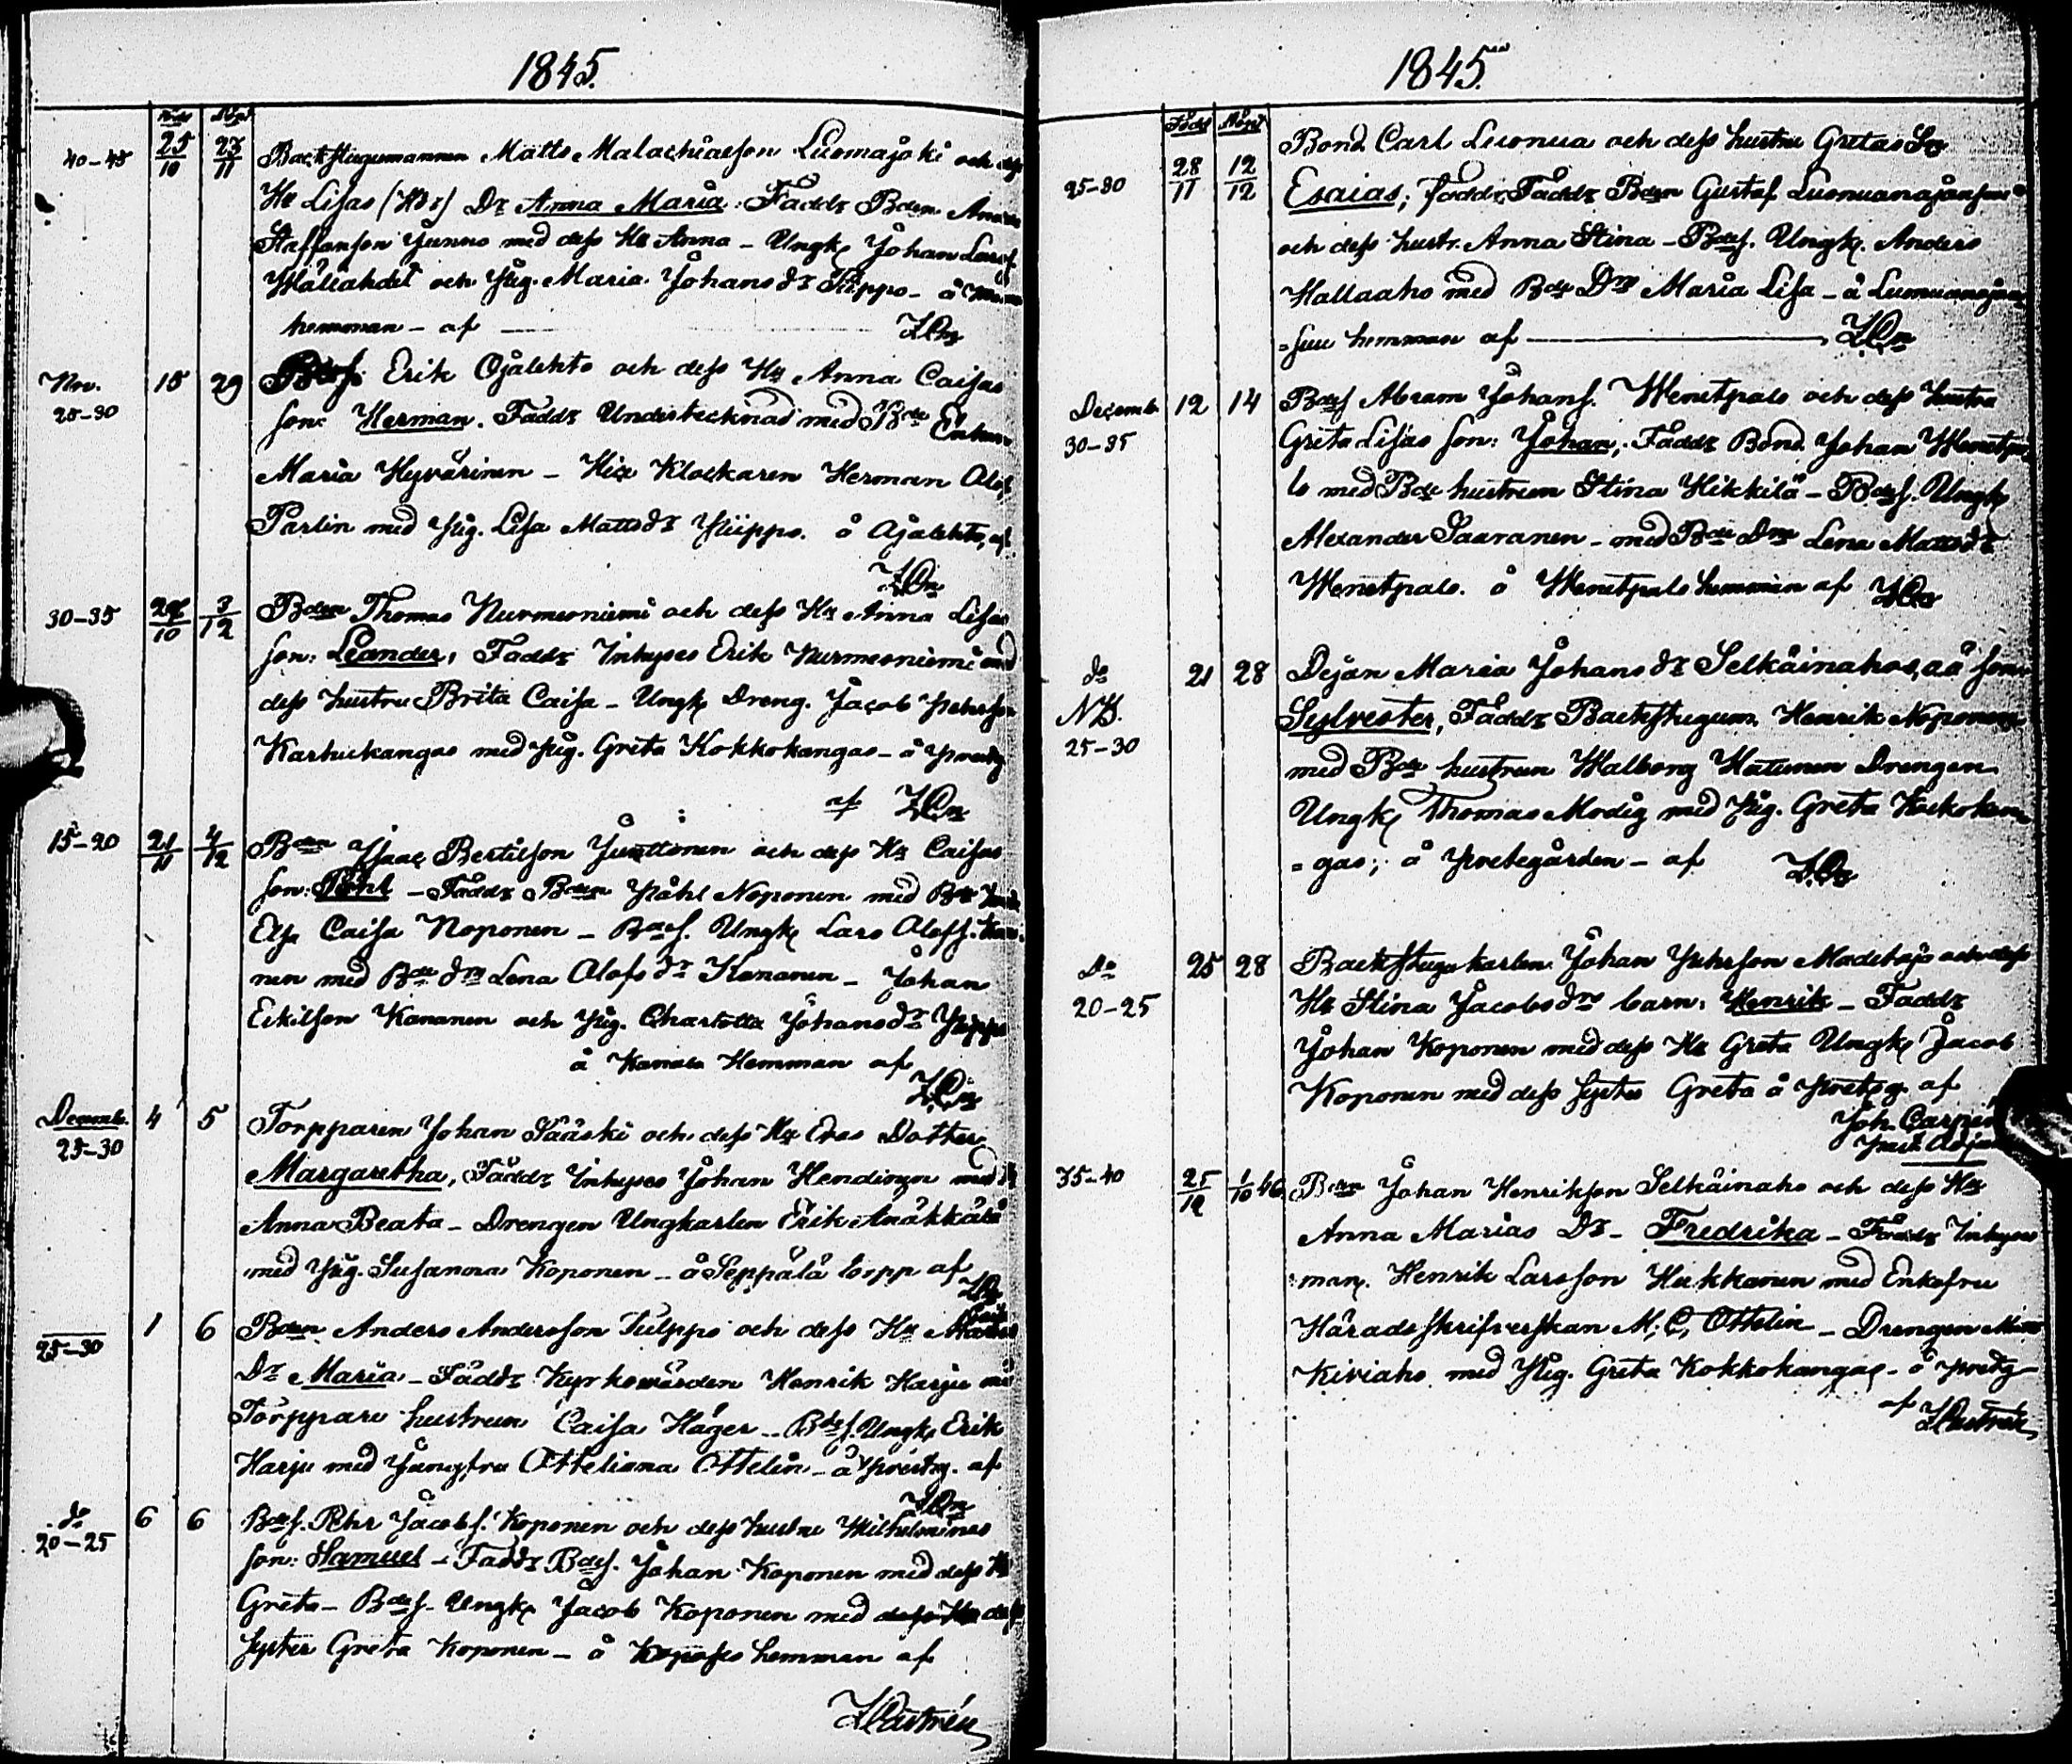 1845.
Född Döpt
40-45 25/10 23/11 Backstugumannen Matts Malachiaeson Luomajoki och dess
Hu Lisas (Hdr) Dr Anna Maria. Faddr Bden
Staffanson Junno med dess Hu Anna - Ungk Johan Larss
och Pig. Maria Johansdr Piippo - å
hemman - af ZCn
Nov. 25-30 15 29 Bdes. Erik Ojalehto och dess Hu Anna Caisas
son: Herman. Faddr Undertecknad med Bde Enkan
Maria Hyvärinen - Klockaren Herman Olof
Parlin med Pig. Lisa Mattsdr Piippo. å Ojalehto, af
ZCn
30-35 3/12 Bden Thomas Nurmesniemi och dess Hu Anna Lisas
son: Leander, Faddr Inhyses Erik Nurmesniemi med
dess hustru Brita Caisa - Ungk Dreng. Jacob Pehrsson
Karhukangas med Pig. Greta Kokkokangas - å Prestg
af ZCn
15-20 21/11 4/12 Bden Isaac Bertilson Junttonen och dess Hu Caisas
son: Påhl - Faddr Bden Påhl Noponen med Bde
Elsa Caisa Noponen - Bdes. Ungk Lars Olofs. Kana-
nen med Bde dr Lena Olofsdr Kananen - Johan
Erikson Kananen och Pig. Charlotta Johansdr Piippo
å Kanala Hemman af
ZCn
Decemb. 25-30 4 5 Torpparen Johan Sääski och dess Hu Evas Dotter
Margaretha, Faddr Inhyses Johan med
Anna Beata - Drengen Ungkarlen Erik Anäkkälä
med Pig. Susanna Koponen - å Seppälä torp af
ZCn
25-30 1 6 Bden Anders Andersson Tulppo och dess Hu
Dr Maria - Faddr Kyrkowärden Henrik Harju med
Torppare hustrun Caisa Häger - Bdes. Ungk Erik
Harju med Jungfru Otteliana Ottelin - å Prestg. af
ZCn
do 20-25 6 6 Bdes. Pehr Jacobs. Koponen och dess hustru Wilhelminas
son: Samuel - Faddr Bdes. Johan Koponen med dess Hu
Greta - Bdes. Ungk Jacob Koponen med dess
Syster Greta Koponen - å hemman af
ZCastrén
1845.
Född Döpt
25-30 28/11 12/12 Bond. Carl Luonua och dess hustru Gretas So
Esaias; Faddr Bden Gustaf Luonuanajansuu
och dess hustr. Anna Stina - Bdes. Ungk. Anders
Hallaaho med Bde Dr Maria Lisa - å Luonuanajan
=suu hemman af ZCn
Decemb. 30-35 12 14 Bdes Abram Johans. Wenetpalo och dess hustru
Greta Lisas son: Johan, Faddr Bond. Johan Wenetpa
lo med Bde hustrun Stina Hikkilä - Bdes. Ungk
Alexander Saaranen - med Bde Dr Lena Mattsdr
Wenetpalo. å Wenetpalo hemman af ZCn
do NB. 25-30 21 28 Dejan Maria Johansdr Selkäinaho, oä son
Sylvester, Faddr Backstugum. Henrik Noponen
med Bde hustrun Walborg Drengen
Ungk Thomas Modig med Pig. Greta Kokkokan
=gas; å Prestegården - af ZCn
Do 20-25 25 28 Backstugukarlen Johan Pehrson och dess
Hu Stina Jacobsdrs barn: Henrik - Faddr
Johan Koponen med dess Hu Greta Ungk Jacob
Koponen med dess Syster Greta å Presteg. af
Joh. Carpén
35-40 25/12 1/10 46 Bden Johan Henrikson Selkäinaho och dess Hu
Anna Marias Dr - Fredrika - Faddr Inhyses
man. Henrik Larsson Hukkanen med Enkefru
Häradsskrifverskan M. C. Ottelin - Drengen
Kiviaho med Pig. Greta Kokkokangas - å Prestg
af ZCastrén